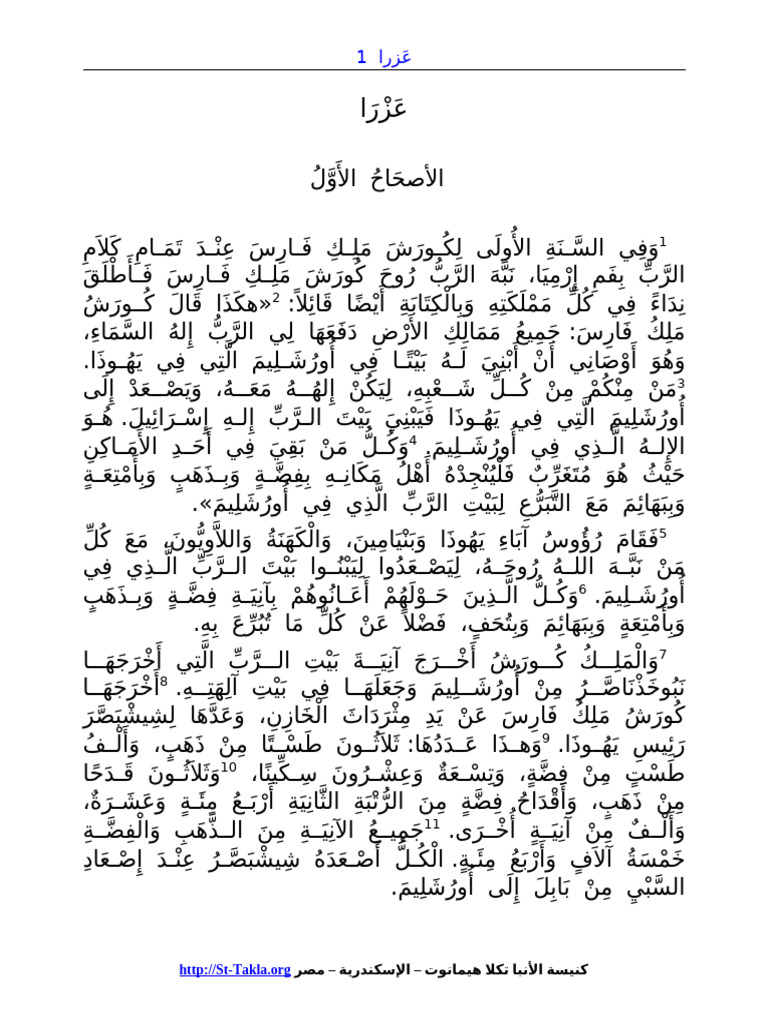 عَزرا 1
عَزْرَا
الأصحَاحُ الأَوَّلُ
1وَفِي السَّنَةِ الأُولَى لِكُورَشَ مَلِكِ فَارِسَ عِنْدَ تَمَامِ كَلاَمِ
الرَّبِّ بِفَمِ إِرْمِيَا، نَبَّهَ الرَّبُّ رُوحَ كُورَشَ مَلِكِ فَارِسَ فَأَطْلَقَ
نِدَاءً فِي كُلِّ مَمْلَكَتِهِ وَبِالْكِتَابَةِ أَيْضًا قَائِلاً: 2«هكَذَا قَالَ كُورَشُ
مَلِكُ فَارِسَ: جَمِيعُ مَمَالِكِ الأَرْضِ دَفَعَهَا لِي الرَّبُّ إِلهُ السَّمَاءِ،
وَهُوَ أَوْصَانِي أَنْ أَبْنِيَ لَهُ بَيْتًا فِي أُورُشَلِيمَ الَّتِي فِي يَهُوذَا.
3مَنْ مِنْكُمْ مِنْ كُلِّ شَعْبِهِ، لِيَكُنْ إِلهُهُ مَعَهُ، وَيَصْعَدْ إِلَى
أُورُشَلِيمَ الَّتِي فِي يَهُوذَا فَيَبْنِيَ بَيْتَ الرَّبِّ إِلهِ إِسْرَائِيلَ. هُوَ
الإِلهُ الَّذِي فِي أُورُشَلِيمَ. 4وَكُلُّ مَنْ بَقِيَ فِي أَحَدِ الأَمَاكِنِ
حَيْثُ هُوَ مُتَغَرِّبٌ فَلْيُنْجِدْهُ أَهْلُ مَكَانِهِ بِفِضَّةٍ وَبِذَهَبٍ وَبِأَمْتِعَةٍ
وَبِبَهَائِمَ مَعَ التَّبَرُّعِ لِبَيْتِ الرَّبِّ الَّذِي فِي أُورُشَلِيمَ».
5فَقَامَ رُؤُوسُ آبَاءِ يَهُوذَا وَبَنْيَامِينَ، وَالْكَهَنَةُ وَاللاَّوِيُّونَ، مَعَ كُلِّ
مَنْ نَبَّهَ اللهُ رُوحَهُ، لِيَصْعَدُوا لِيَبْنُوا بَيْتَ الرَّبِّ الَّذِي فِي
أُورُشَلِيمَ. 6وَكُلُّ الَّذِينَ حَوْلَهُمْ أَعَانُوهُمْ بِآنِيَةِ فِضَّةٍ وَبِذَهَبٍ
وَبِأَمْتِعَةٍ وَبِبَهَائِمَ وَبِتُحَفٍ، فَضْلاً عَنْ كُلِّ مَا تُبُرِّعَ بِهِ.
7وَالْمَلِكُ كُورَشُ أَخْرَجَ آنِيَةَ بَيْتِ الرَّبِّ الَّتِي أَخْرَجَهَا
نَبُوخَذْنَاصَّرُ مِنْ أُورُشَلِيمَ وَجَعَلَهَا فِي بَيْتِ آلِهَتِهِ. 8أَخْرَجَهَا
كُورَشُ مَلِكُ فَارِسَ عَنْ يَدِ مِثْرَدَاثَ الْخَازِنِ، وَعَدَّهَا لِشِيشْبَصَّرَ
رَئِيسِ يَهُوذَا. 9وَهذَا عَدَدُهَا: ثَلاَثُونَ طَسْتًا مِنْ ذَهَبٍ، وَأَلْفُ
طَسْتٍ مِنْ فِضَّةٍ، وَتِسْعَةٌ وَعِشْرُونَ سِكِّينًا، 10وَثَلاَثُونَ قَدَحًا
مِنْ ذَهَبٍ، وَأَقْدَاحُ فِضَّةٍ مِنَ الرُّتْبَةِ الثَّانِيَةِ أَرْبَعُ مِئَةٍ وَعَشَرَةٌ،
وَأَلْفٌ مِنْ آنِيَةٍ أُخْرَى. 11جَمِيعُ الآنِيَةِ مِنَ الذَّهَبِ وَالْفِضَّةِ
خَمْسَةُ آلاَفٍ وَأَرْبَعُ مِئَةٍ. الْكُلُّ أَصْعَدَهُ شِيشْبَصَّرُ عِنْدَ إِصْعَادِ
السَّبْيِ مِنْ بَابِلَ إِلَى أُورُشَلِيمَ.
كنيسة الأنبا تكلا هيمانوت – الإسكندرية – مصر http://St-Takla.org